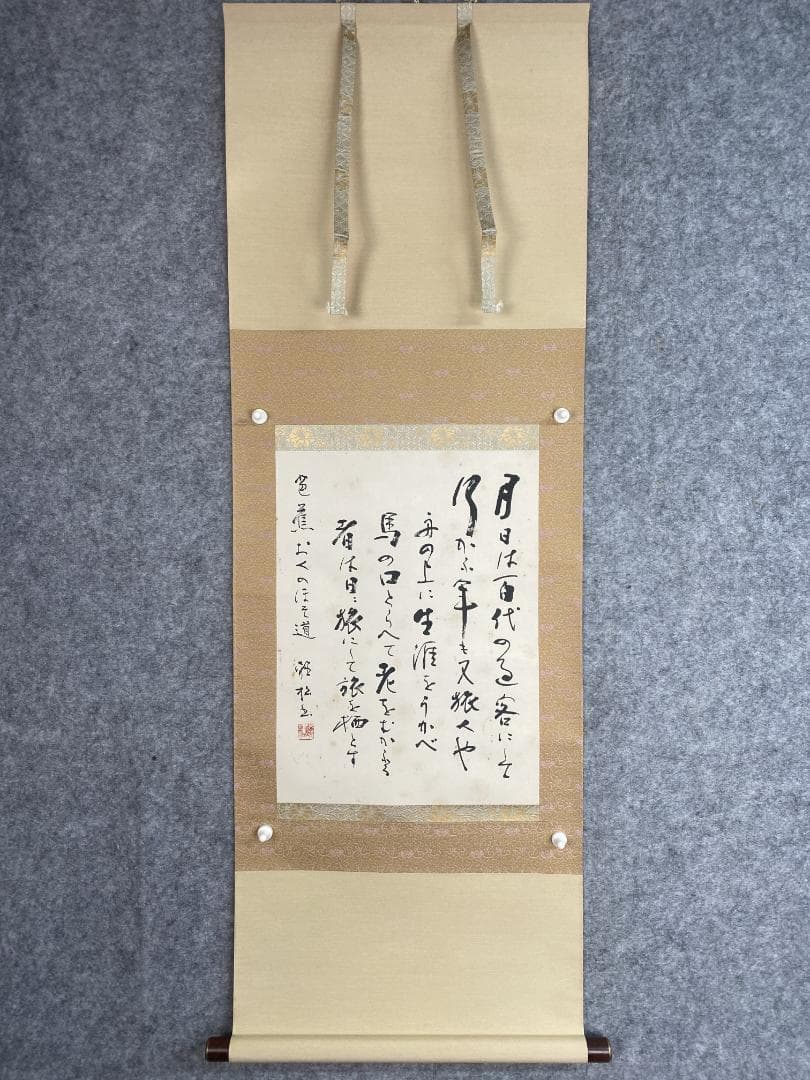 月日は百代の過客にして
行かふ年も又旅人也
舟の上に生涯をうかべ
馬の口とらへて老をむかふる
者は日ゝ旅にして旅を栖とす
芭蕉おくのほそ道